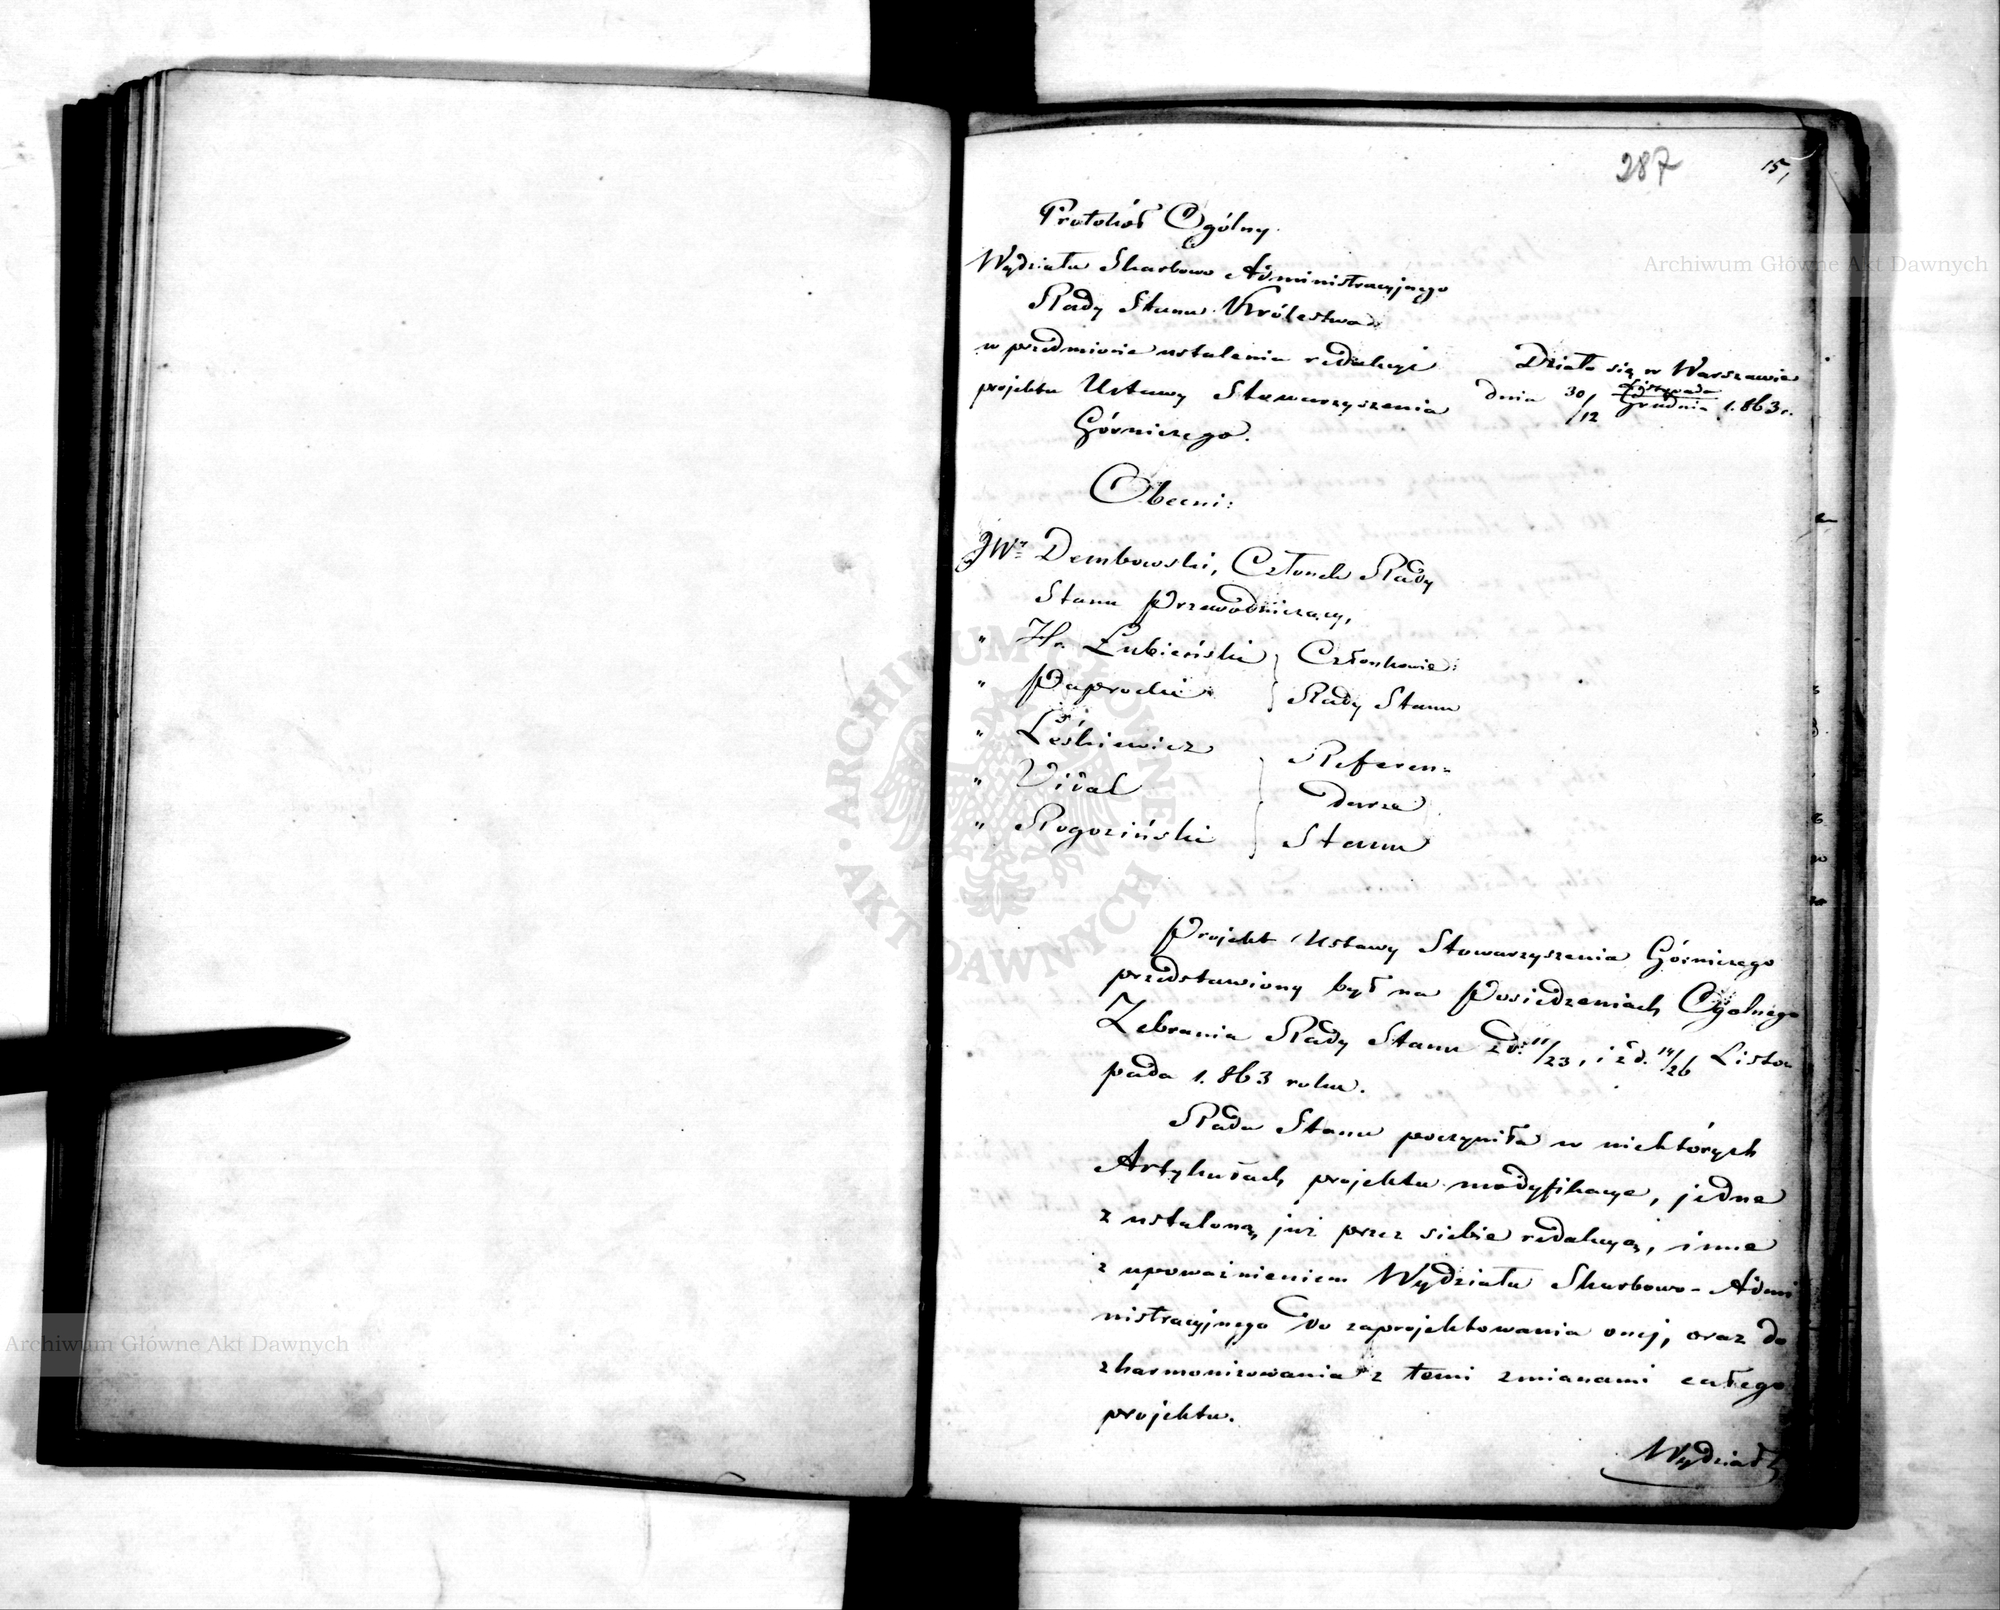 287
15,
Protokół Ogólny
Wydziału Skarbowo Administracyjnego
Rady Stanu Królestwa
w przedmiocie ustalenia redakcyi
projektu Ustawy Stowarzyszenia
Górniczego.
Działo się w Warszawie
dnia 30/12 Listopada/Grudnia 1.863 r.
Obecni:
JWn Dembowski, Członek Rady
Stanu Przewodniczący,
" Hr. Łubieński } Członkowie
" Paprocki } Rady Stanu
" Leśkiewicz } Referen=
" Vidal } darze
" Rogoziński } Stanu
Projekt Ustawy Stowarzyszenia Górniczego
przedstawiony był na Posiedzeniach Ogólnego
Zebrania Rady Stanu z d. 11/23, i z d. 14/26 Listo=
pada 1.863 roku.
Rada Stanu poczyniła w niektórych
Artykułach projektu modyfikacye, jedne
z ustaloną już przez siebie redakcyą, inne
z upoważnieniem Wydziału Skarbowo-Admi
nistracyjnego do zaprojektowania onej, oraz do
zharmonizowania z temi zmianami całego
projektu.
Wydział
Archiwum Główne Akt Dawnych
Archiwum Główne Akt Dawnych
ARCHIWUM GŁÓWNE AKT DAWNYCH